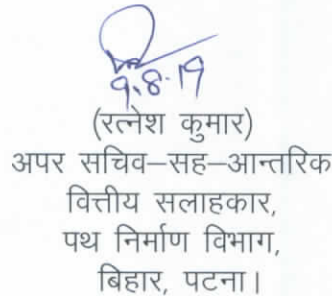 9.8.19
(रत्नेश कुमार)
अपर सचिव–सह–आन्तरिक
वित्तीय सलाहकार,
पथ निर्माण विभाग,
बिहार, पटना।